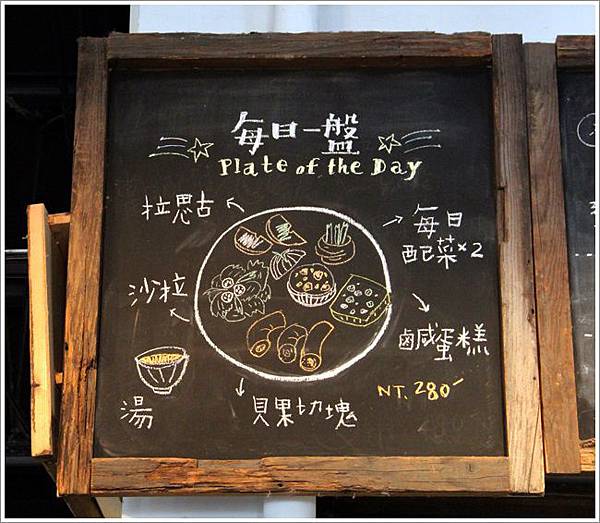 每日一盤
Plate of the Day
拉思古
每日
配菜×2
沙拉
鹹蛋糕
NT.280-
湯
貝果切塊